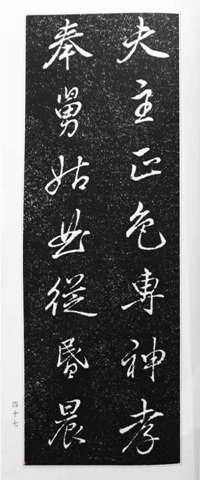 夫主正色專神孝
奉舅姑曲從昬晨
四十七